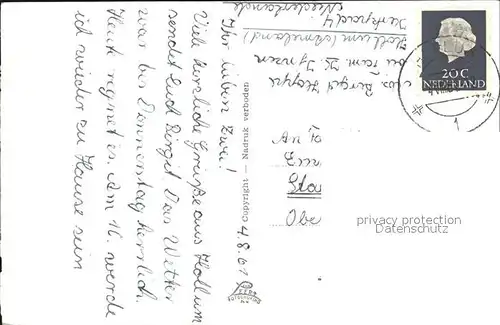 Ihr lieben Zwei!
Viele herzliche Grüße aus Hollum
sendet Euch Birgit Das Wetter
war bis Donnerstag herrlich.
Heute regnet es. Am 16. werde
ich wieder zu Hause sein
4.8.61
Copyright — Nadruk verboden
Birgit
Hollum (Ameland)
4
Niederlande
20 C
NEDERLAND
Sta
Obe
privacy protection
Datenschutz